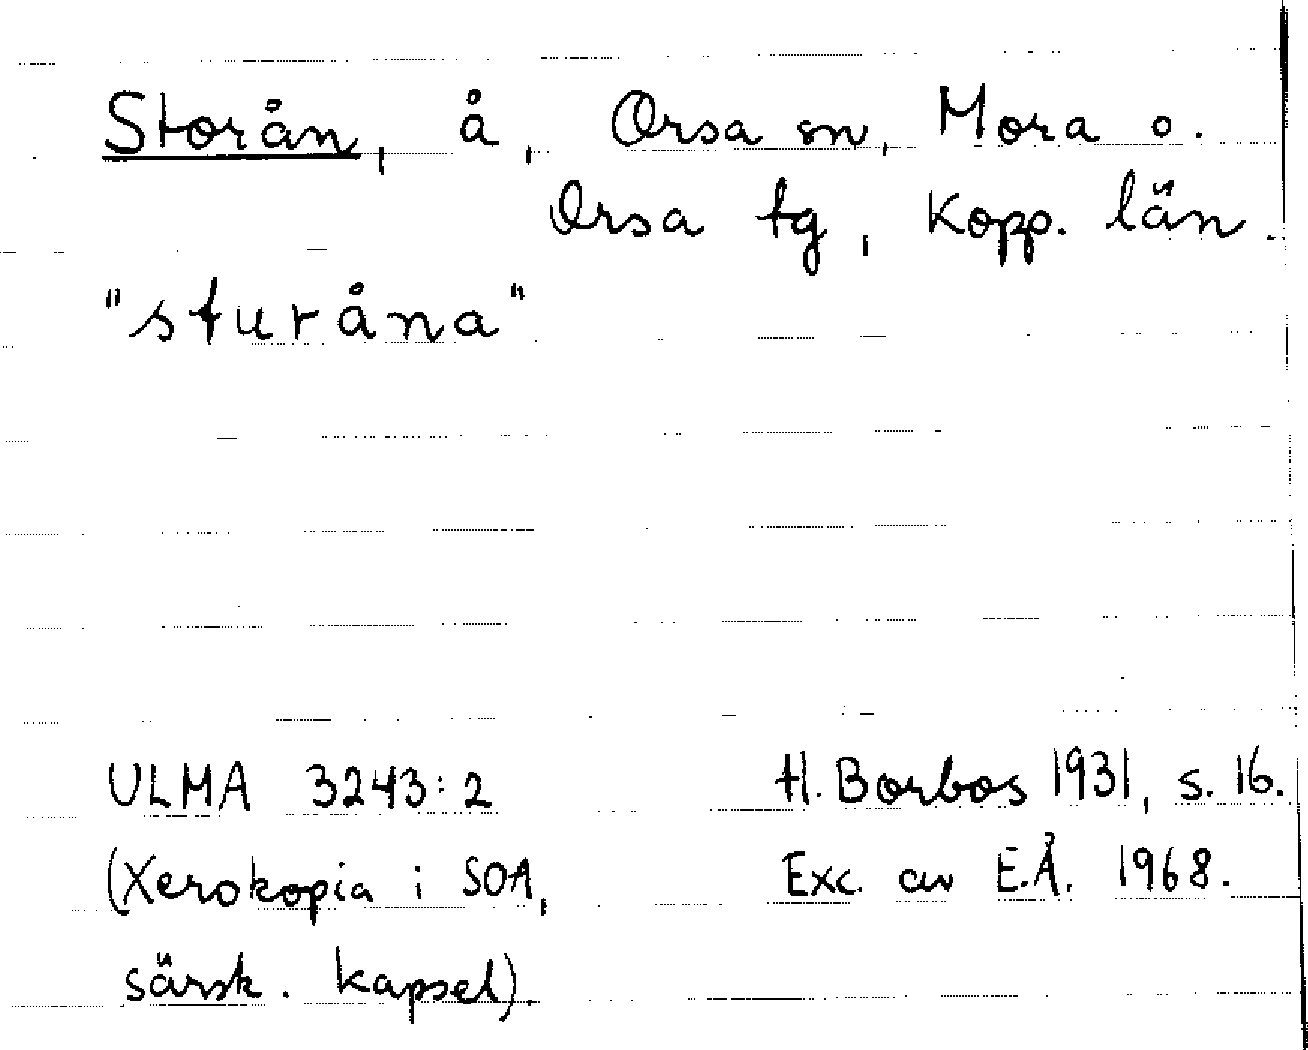 Storån, å, Orsa sn, Mora o.
Orsa tg, Kopp. län.
"sturåna"
ULMA 3243:2
(Xerokopia i SOA,
särsk. kapsel).
H. Borbos 1931, s. 16.
Exc. av E.Å. 1968.